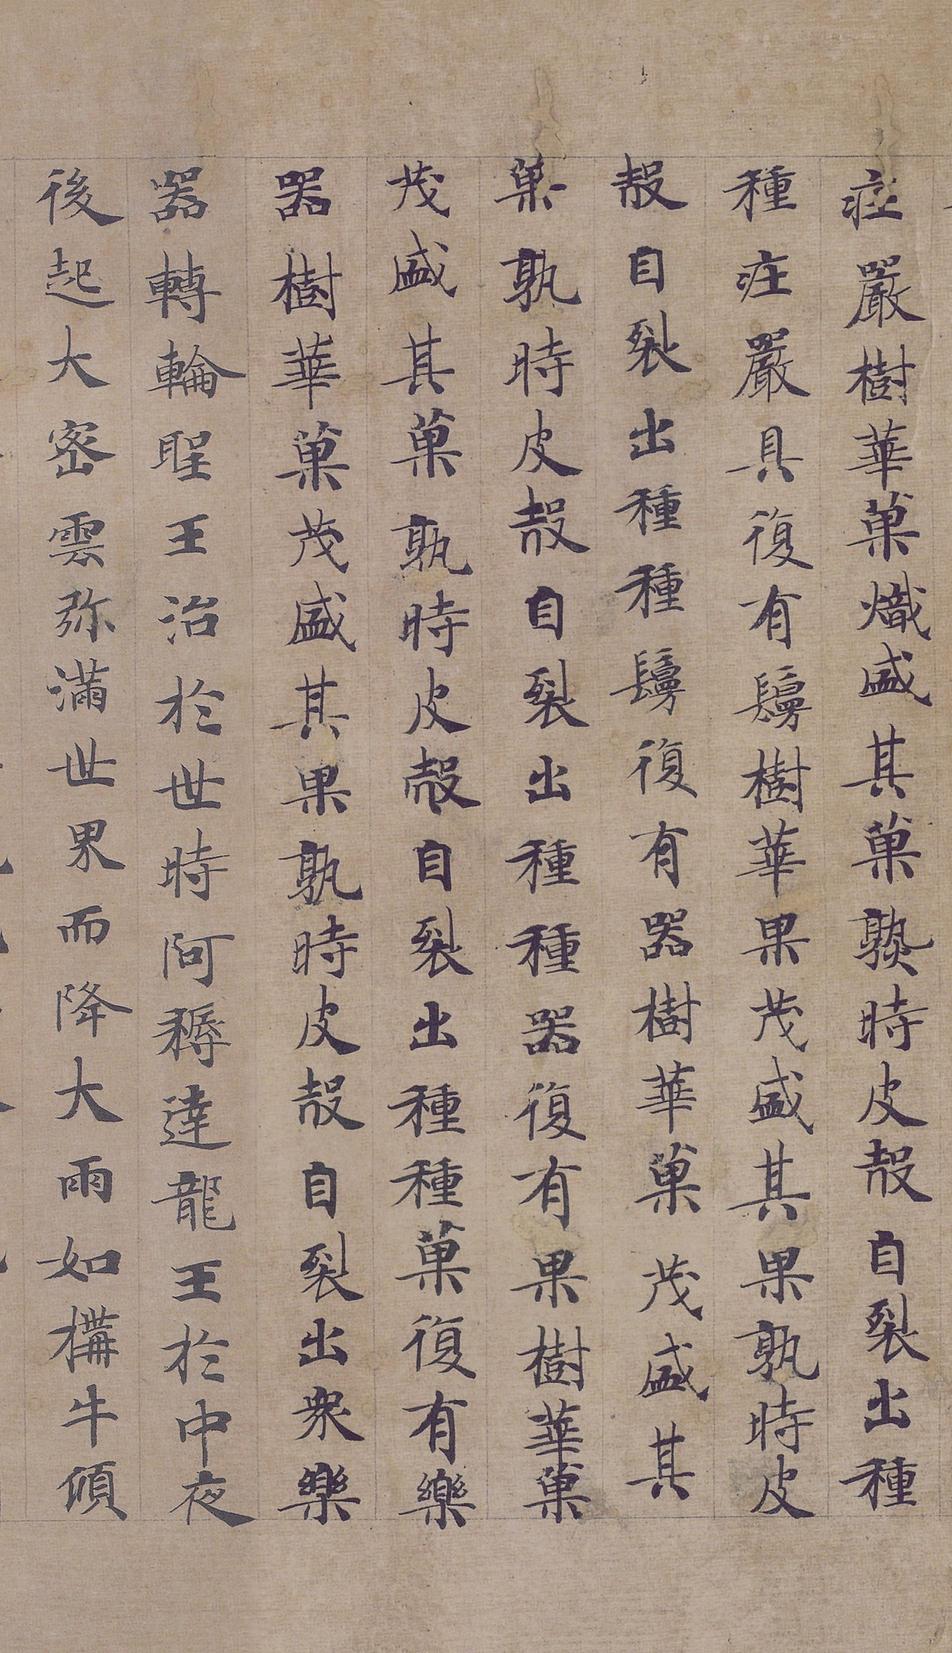 疘嚴樹華菓熾盛其菓熟時皮殼自裂出種
種疘嚴具復有鬘樹華果茂盛其果孰時皮
殼自裂出種種鬘復有器樹華菓茂盛其
菓孰時皮殼自裂出種種器復有果樹華菓
茂盛其菓孰時皮殼自裂出種種菓復有樂
器樹華菓茂盛其果孰時皮殼自裂出衆樂
器轉輪聖王治於世時阿耨達龍王於中夜
後起大密雲弥滿世界而降大雨如構牛傾